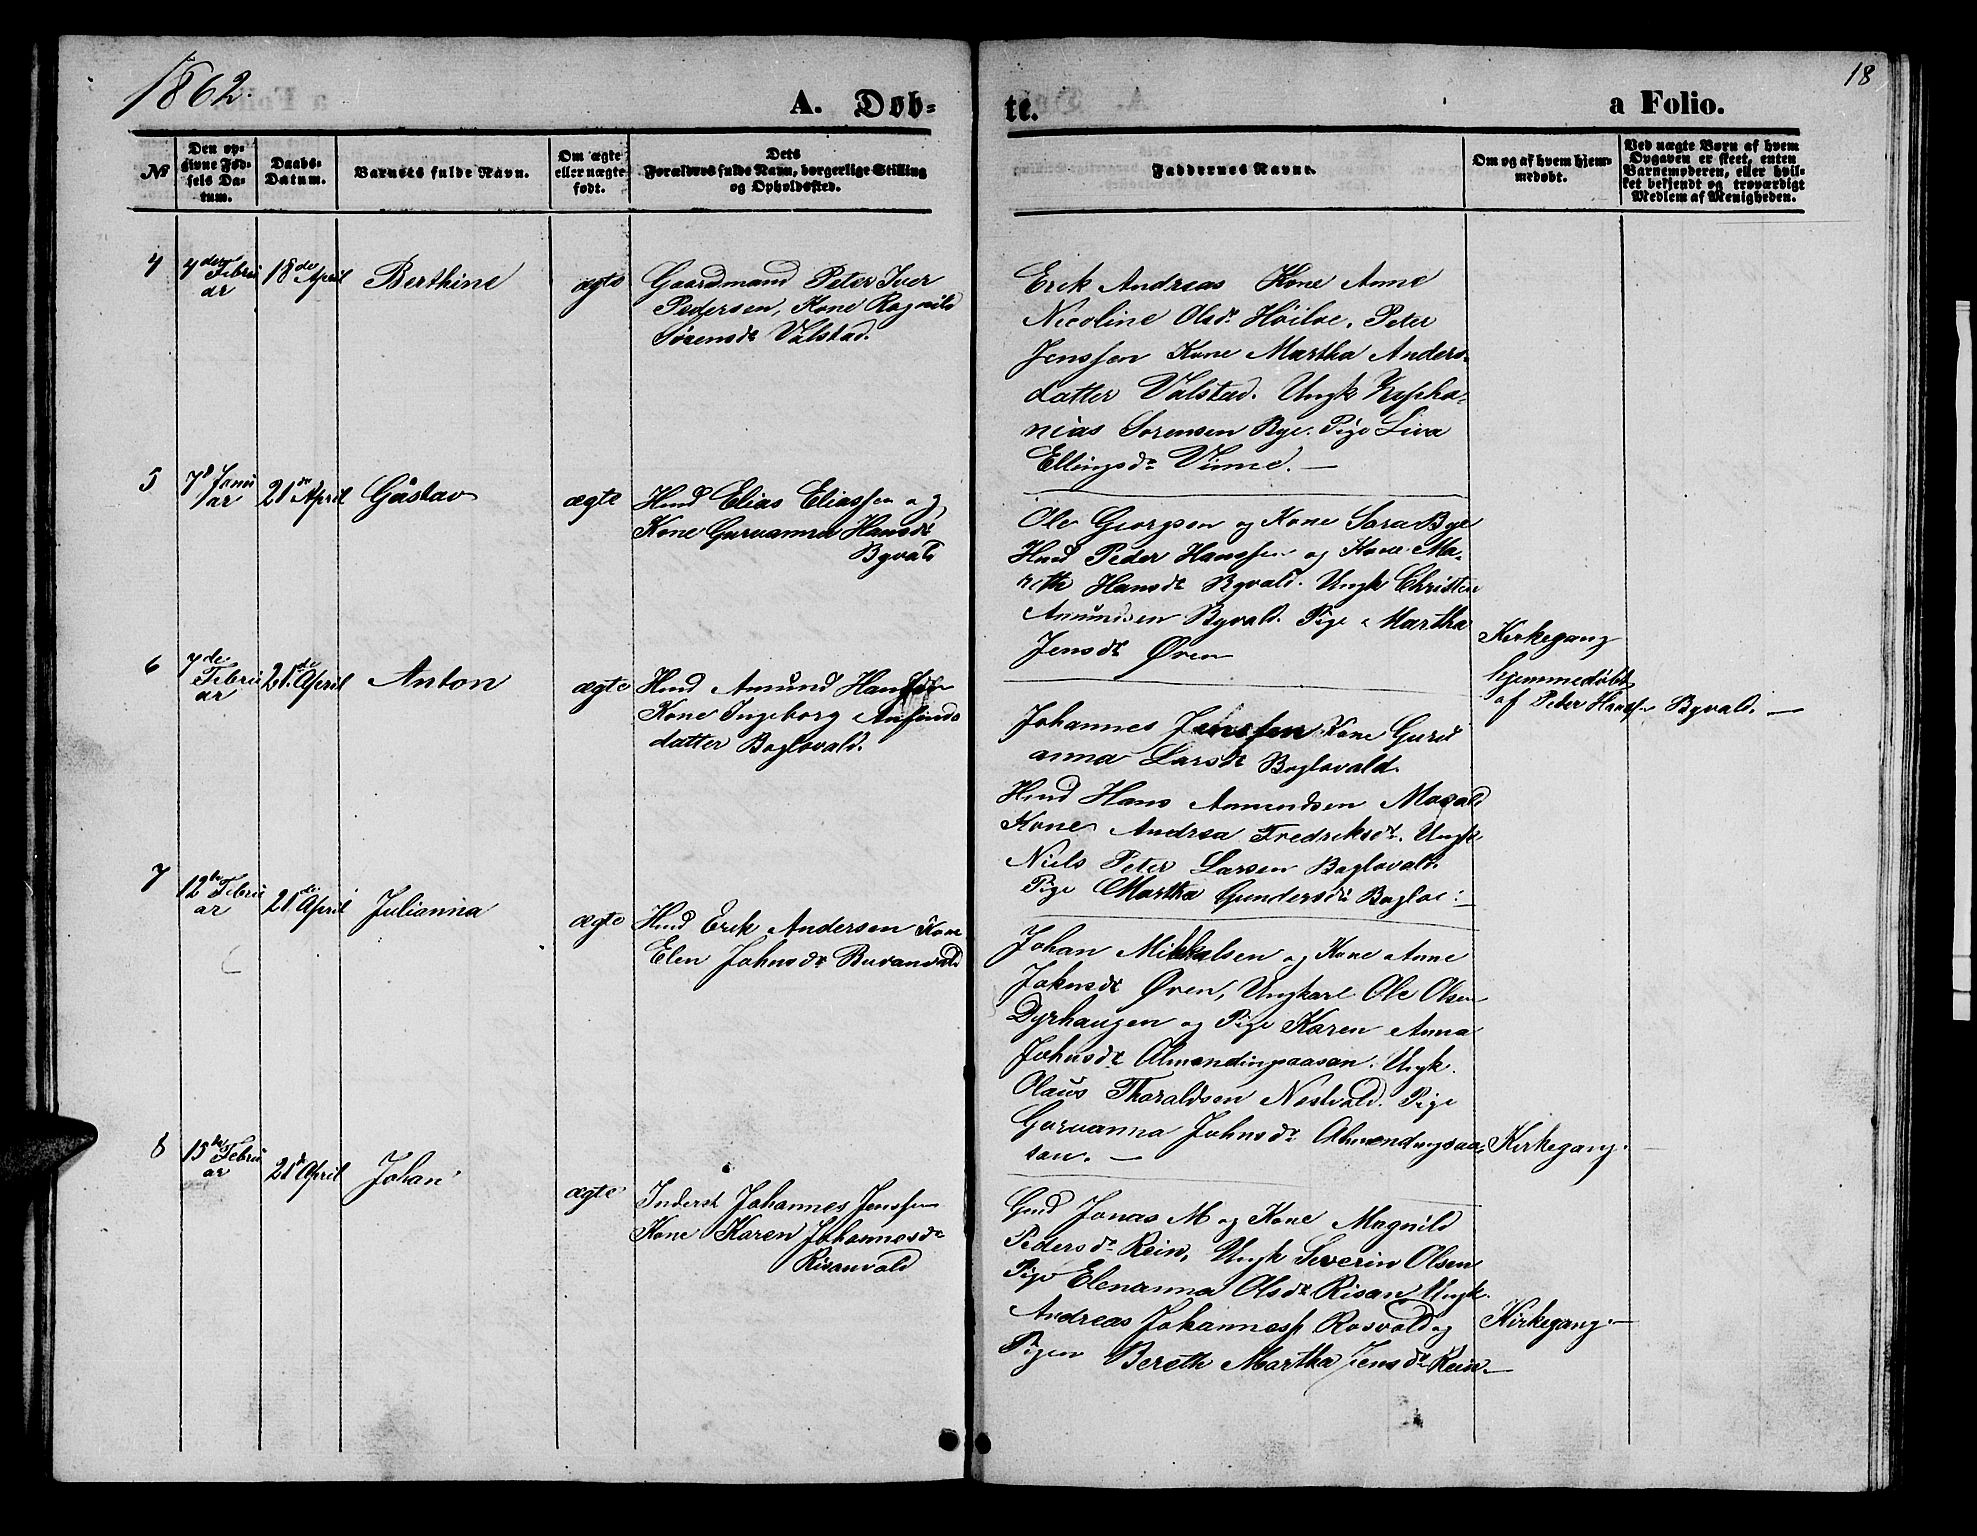 1862.
18
A. Døb-
te.
a Folio.
No
Den op-
givne Fød-
sels Da-
tum.
Daabs-
Datum.
Barnets fulde Navn.
Om ægte
eller uægte
født.
Dets
Forældres fulde Navn, borgerlige Stilling
og Opholdssted.
Faddernes Navne.
Om og af hvem hjem-
medøbt.
Ved uægte Børn af hvem
Opgaven er skeet, enten
Barnemoderen, eller hvil-
ket bekjendt og troværdigt
Medlem af Menigheden.
4
4de Febru
ar
18de April
Berthine
ægte
Gaardmand Peter Iver
Pedersen, Kone Ragnild
Sørensdr Valstad.
Erik Andreas Kone Anne
Nicoline Olsdr Høiloe. Peter
Jenssen Kone Martha Anders-
datter Valstad. Ungk Zepha-
nias Sorensen Bye. Pige Liva
Ellingsdr Vinne. —
5
7d Janu
ar
21de April
Gústav
ægte
Hmd Elias Eliassen og
Kone Guruanna Hansdr
Byvald
Ole Georgsen og Kone Sara Bye
Hmd Peder Hanssen og Kone Ma-
reth Hansdr Byvald. Ungk Christen
Amundsen Byvald. Pige Martha
Jensdr Øren
Kirkegang
6
7de
Febru
ar
21de April
Anton
ægte
Hmd Amund Hanssen
Kone Ingeborg Anfinds
datter Baglovald.
Johannes Jenssen Kone Guru
anna Larsdr Baglovald.
Hmd Hans Amundsen Movald
Kone Andrea Fredriksdr. Ungk
Niels Peter Larsen Baglovald.
Pige Martha Gundersdr Bagloe. —
hjemmedøbt
af Peder Hanss Byvald. —
7
12te Febru
ar
21de April
Julianna
ægte
Hmd Erik Andersen Kone
Elen Johnsdr Buranvald
Johan Mikkelsen og Kone Anne
Johnsdr Øren, Ungkarl Ole Olsen
Dyrhaugen og Pige Karen Anna
Johnsdr Almendingsaasan. Ungk.
Olaus Thoraldsen Nestvold. Pige
Guruanna Johnsdr Almendingsaa-
san. —
Kirkegang. —
8
15de Febru
ar
21de April
Johan
ægte
Inderst Johannes Jenssen
Kone Karen Johannesdr
Risanvald
Gmd Jonas M og Kone Magnild
Pedersdr Rein, Ungk Severin Olsen
Pige Elenanna Olsdr Risan Ungk.
Andreas Johanness Rosvold og
Pigen Bereth Martha Jensdr Rein. —
Kirkegang. —